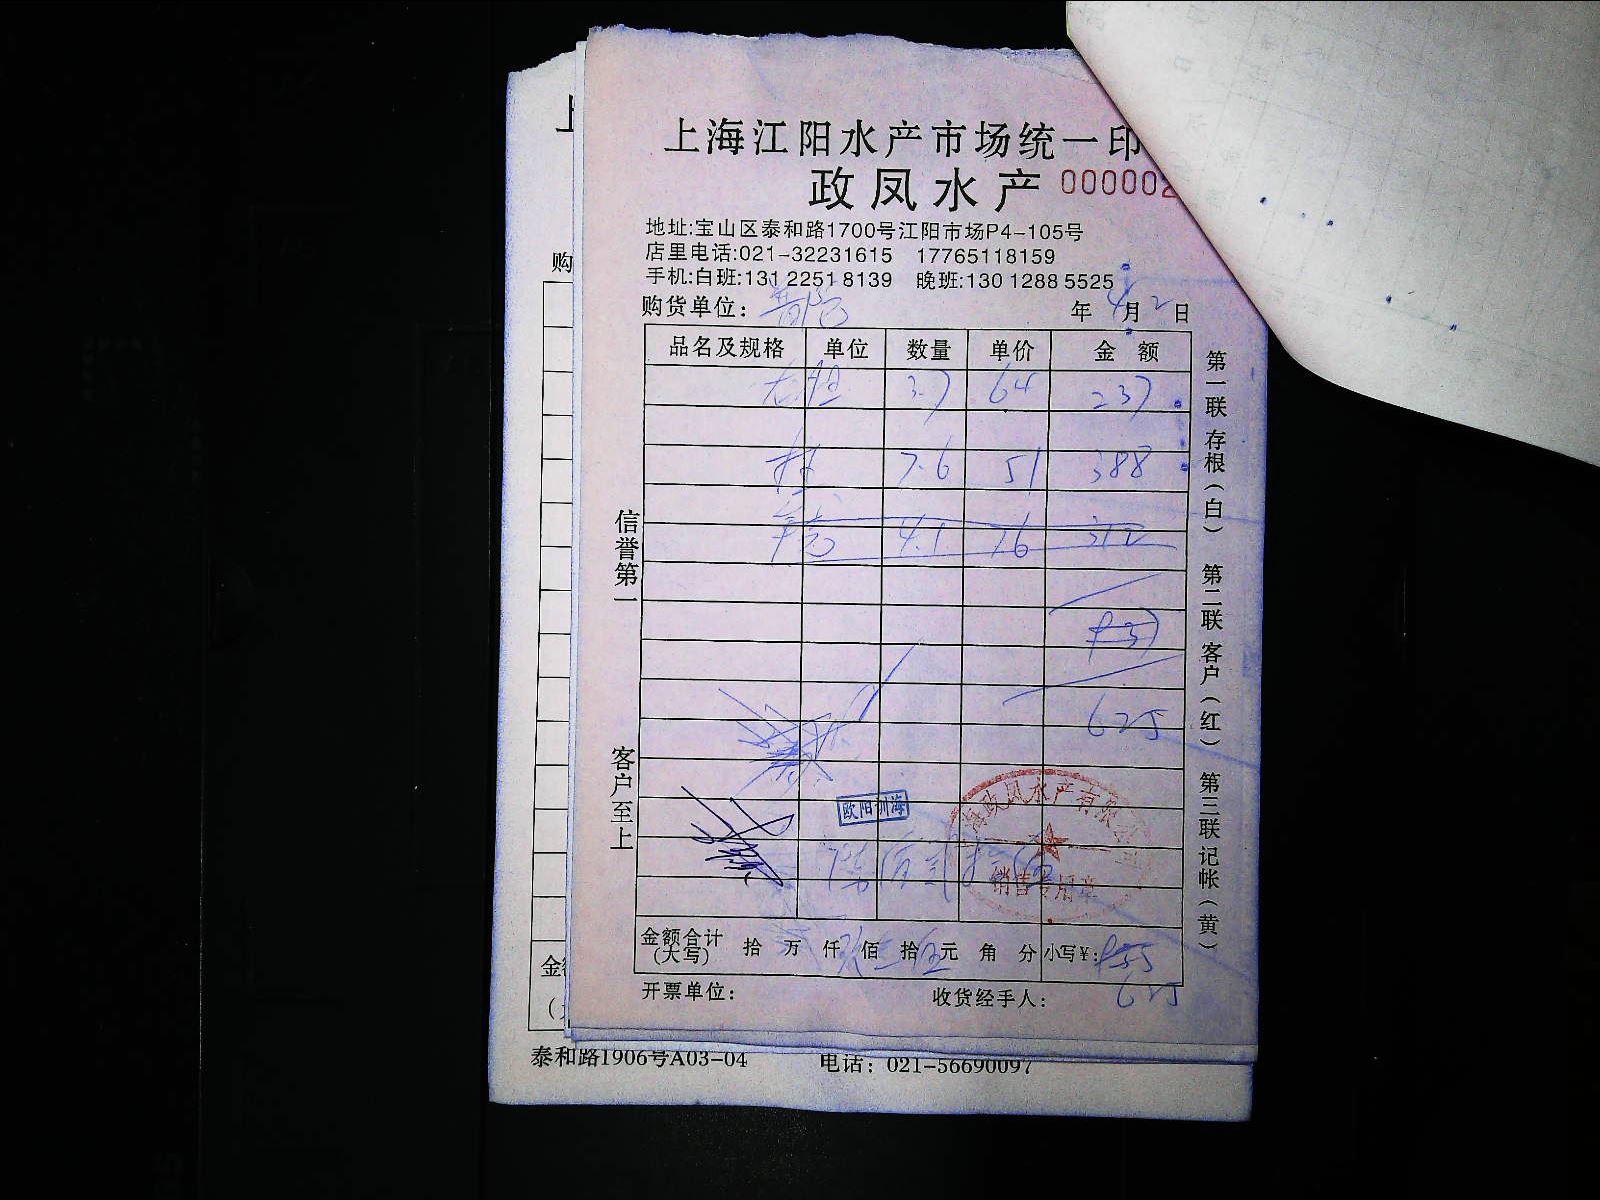 上海江阳水产市场统一印
政凤水产 000002
地址:宝山区泰和路1700号江阳市场P4-105号
店里电话:021-32231615 17765118159
手机:白班:131 2251 8139 晚班:130 1288 5525
购货单位: 普陀 年 4月 2日
品名及规格 单位 数量 单价 金额
3.7 64 237
7.6 51 388
4.1 76 312
937
625
信誉第一 客户至上
第一联存根(白) 第二联客户(红) 第三联记帐(黄)
欧阳圳海
海政凤水产有限公司
销售专用章
陆佰贰拾伍
金额合计(大写) 拾 万 仟 佰 拾 元 角 分 小写¥:
625
开票单位: 收货经手人:
上
购
金
泰和路1906号A03-04 电话: 021-56690097